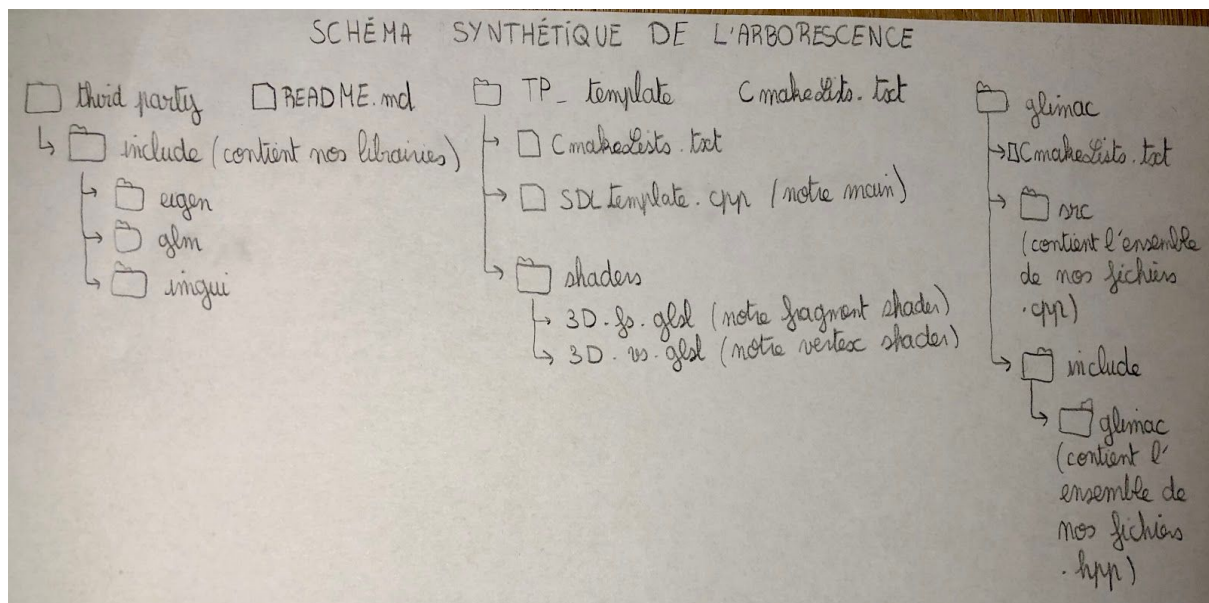 SCHÉMA SYNTHÉTIQUE DE L'ARBORESCENCE
third party
include (contient nos librairies)
eigen
glm
imgui
README.md
TP_template
CmakeLists.txt
SDLtemplate.cpp (notre main)
shaders
3D.fs.glsl (notre fragment shader)
3D.vs.glsl (notre vertex shader)
CmakeLists.txt
glimac
CmakeLists.txt
src
(contient l'ensemble
de nos fichiers
.cpp)
include
glimac
(contient l'
ensemble de
nos fichiers
.hpp)